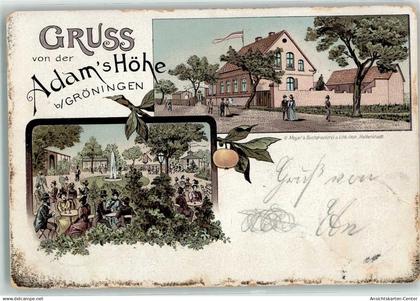 GRUSS
von der
Adam's Höhe
b/GRÖNINGEN
Meyer's Buchdruckerei u. Lith. Inst. Halberstadt
Gruß von
Ansichtskarten-Center